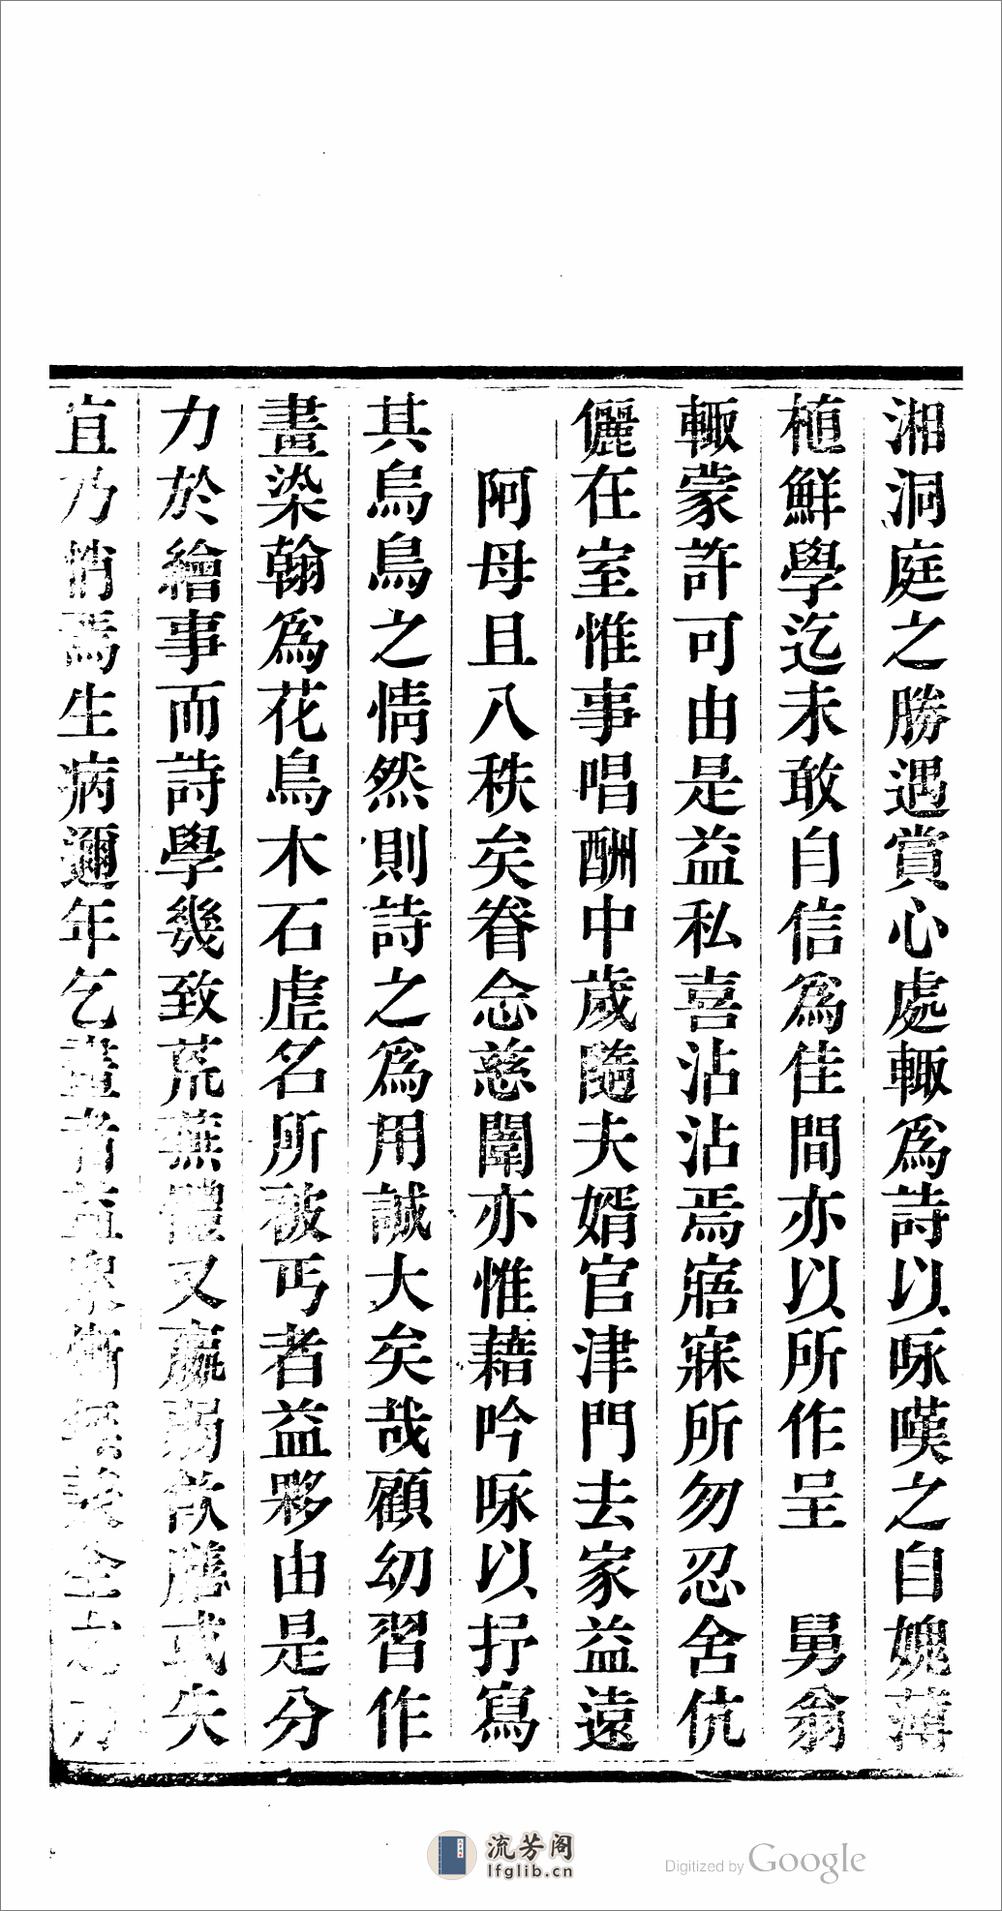 湘洞庭之勝遇賞心處輙爲詩以咏嘆之自媿薄
植鮮學迄未敢自信爲佳間亦以所作呈　舅翁
輙蒙許可由是益私喜沾沾焉寤寐所勿忍舍伉
儷在室惟事唱酬中歲隨夫婿官津門去家益遠
阿母且八秩矣眷念慈闈亦惟藉吟咏以抒寫
其烏鳥之情然則詩之爲用誠大矣哉顧幼習作
畫染翰爲花鳥木石虛名所被丐者益夥由是分
力於繪事而詩學幾致荒蕪體又羸弱飲膳或失
宜乃悄焉生病邇年乞畫者益衆衝全之力
流芳阁
lfglib.cn
Digitized by Google